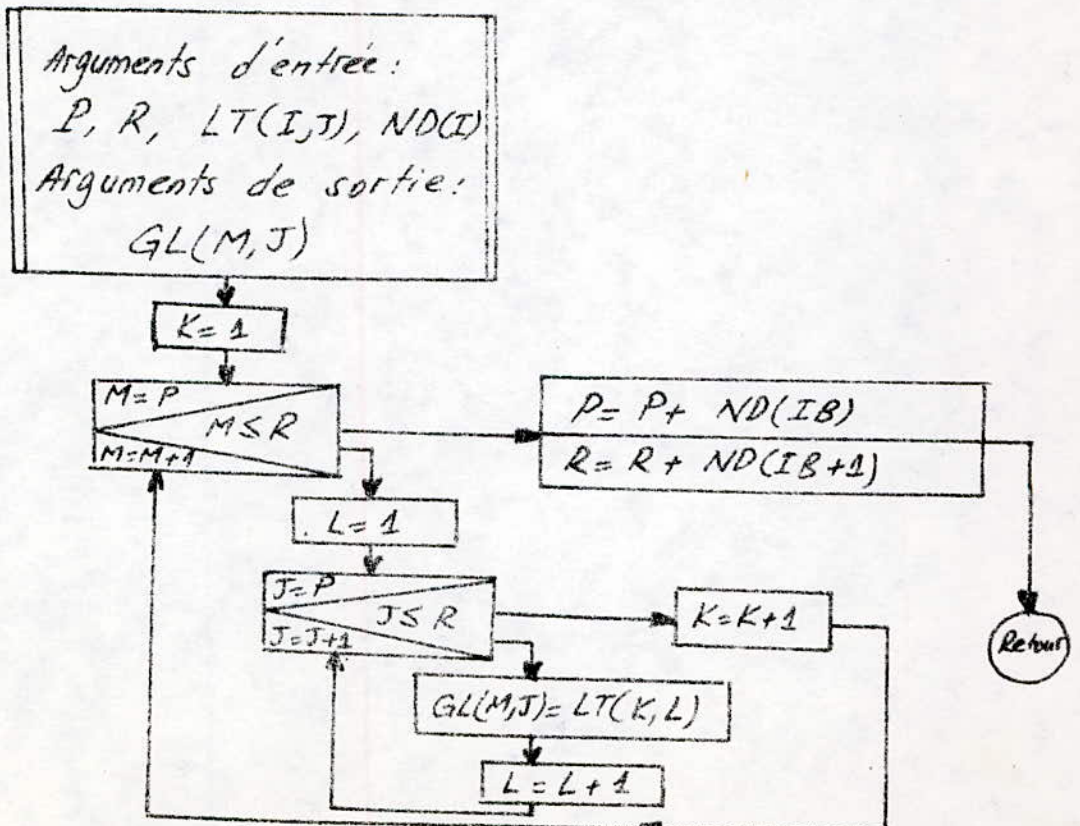 Arguments d'entrée :
P, R, LT(I,J), ND(I)
Arguments de sortie :
GL(M,J)
K= 1
M= P
M≤R
M=M+1
P= P+ ND(IB)
R= R+ ND(IB+1)
L= 1
J= P
J≤ R
J=J+1
K=K+1
Retour
GL(M,J)= LT(K,L)
L= L+1